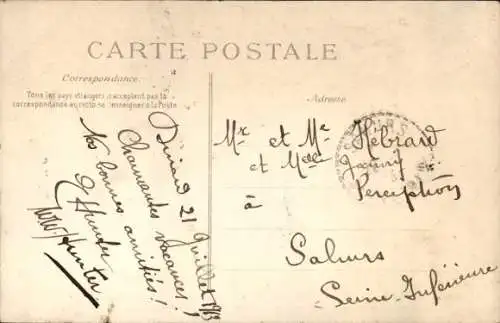 CARTE POSTALE
Correspondance
Tous les pays étrangers n'acceptent pas la
correspondance au recto se renseigner à la Poste
Adresse
Dinard 21 Juillet 1913
Charmantes vacances!
Nos bonnes amitiés!
J Hunter
Hunter
Mr et Me Hébrard
et Melle
Perception
à
Sahurs
Seine-Inférieure